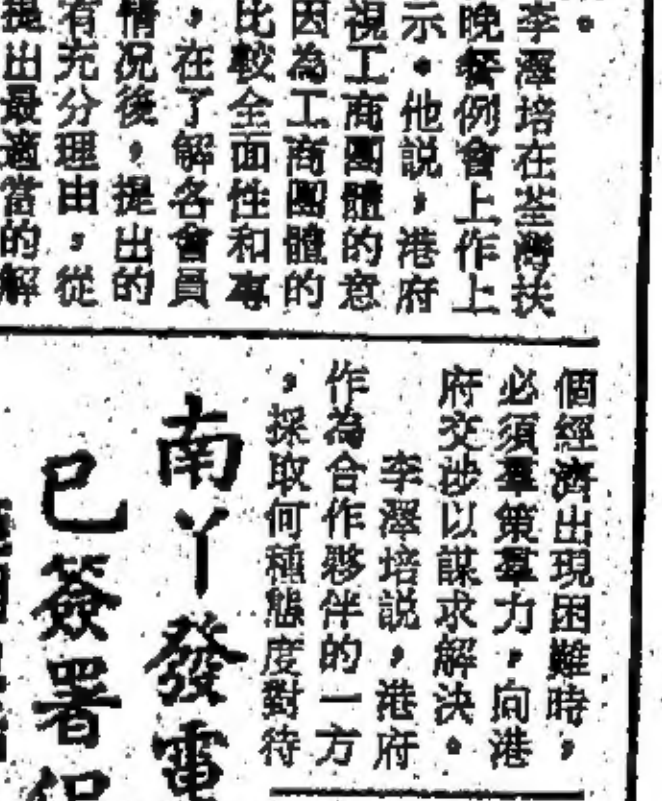 。
李澤培在荃灣扶
晚餐例會上作上
示。他説,港府
視工商團體的意
因為工商團體的
比較全面性和專
,在了解各會員
情况後,提出的
有充分理由,從
提出最適當的解
個經濟出現困難時,
必須羣策羣力,向港
府交涉以謀求解決。
李澤培説,港府
作為合作夥伴的一方
,採取何種態度對待
南丫發電
已簽署